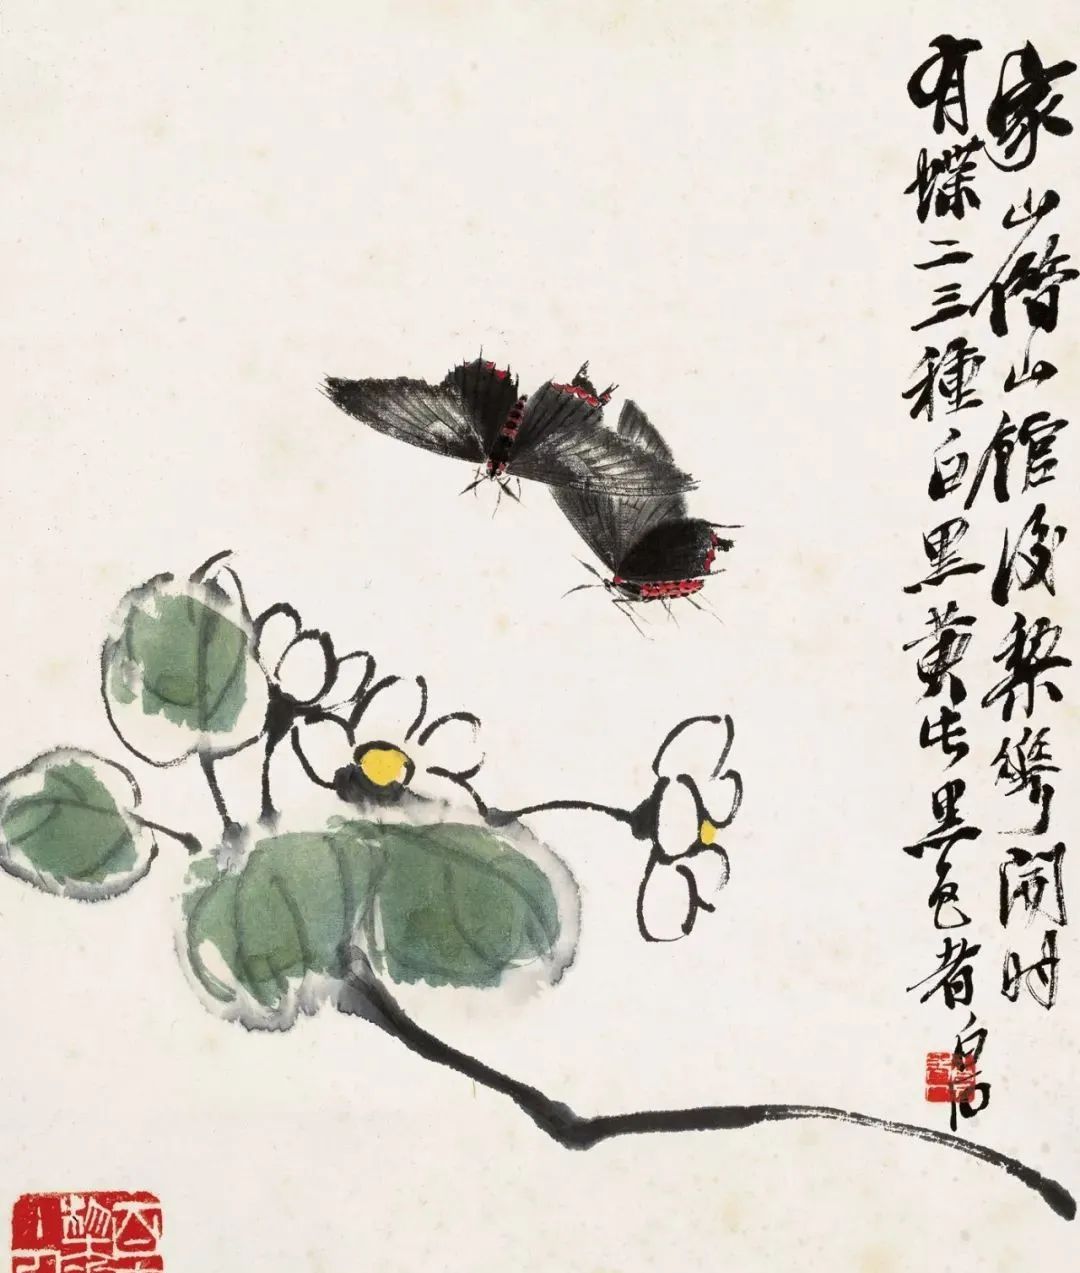 家山借山館後棃華開時
有蝶二三種白黑黃此黑色者
白石